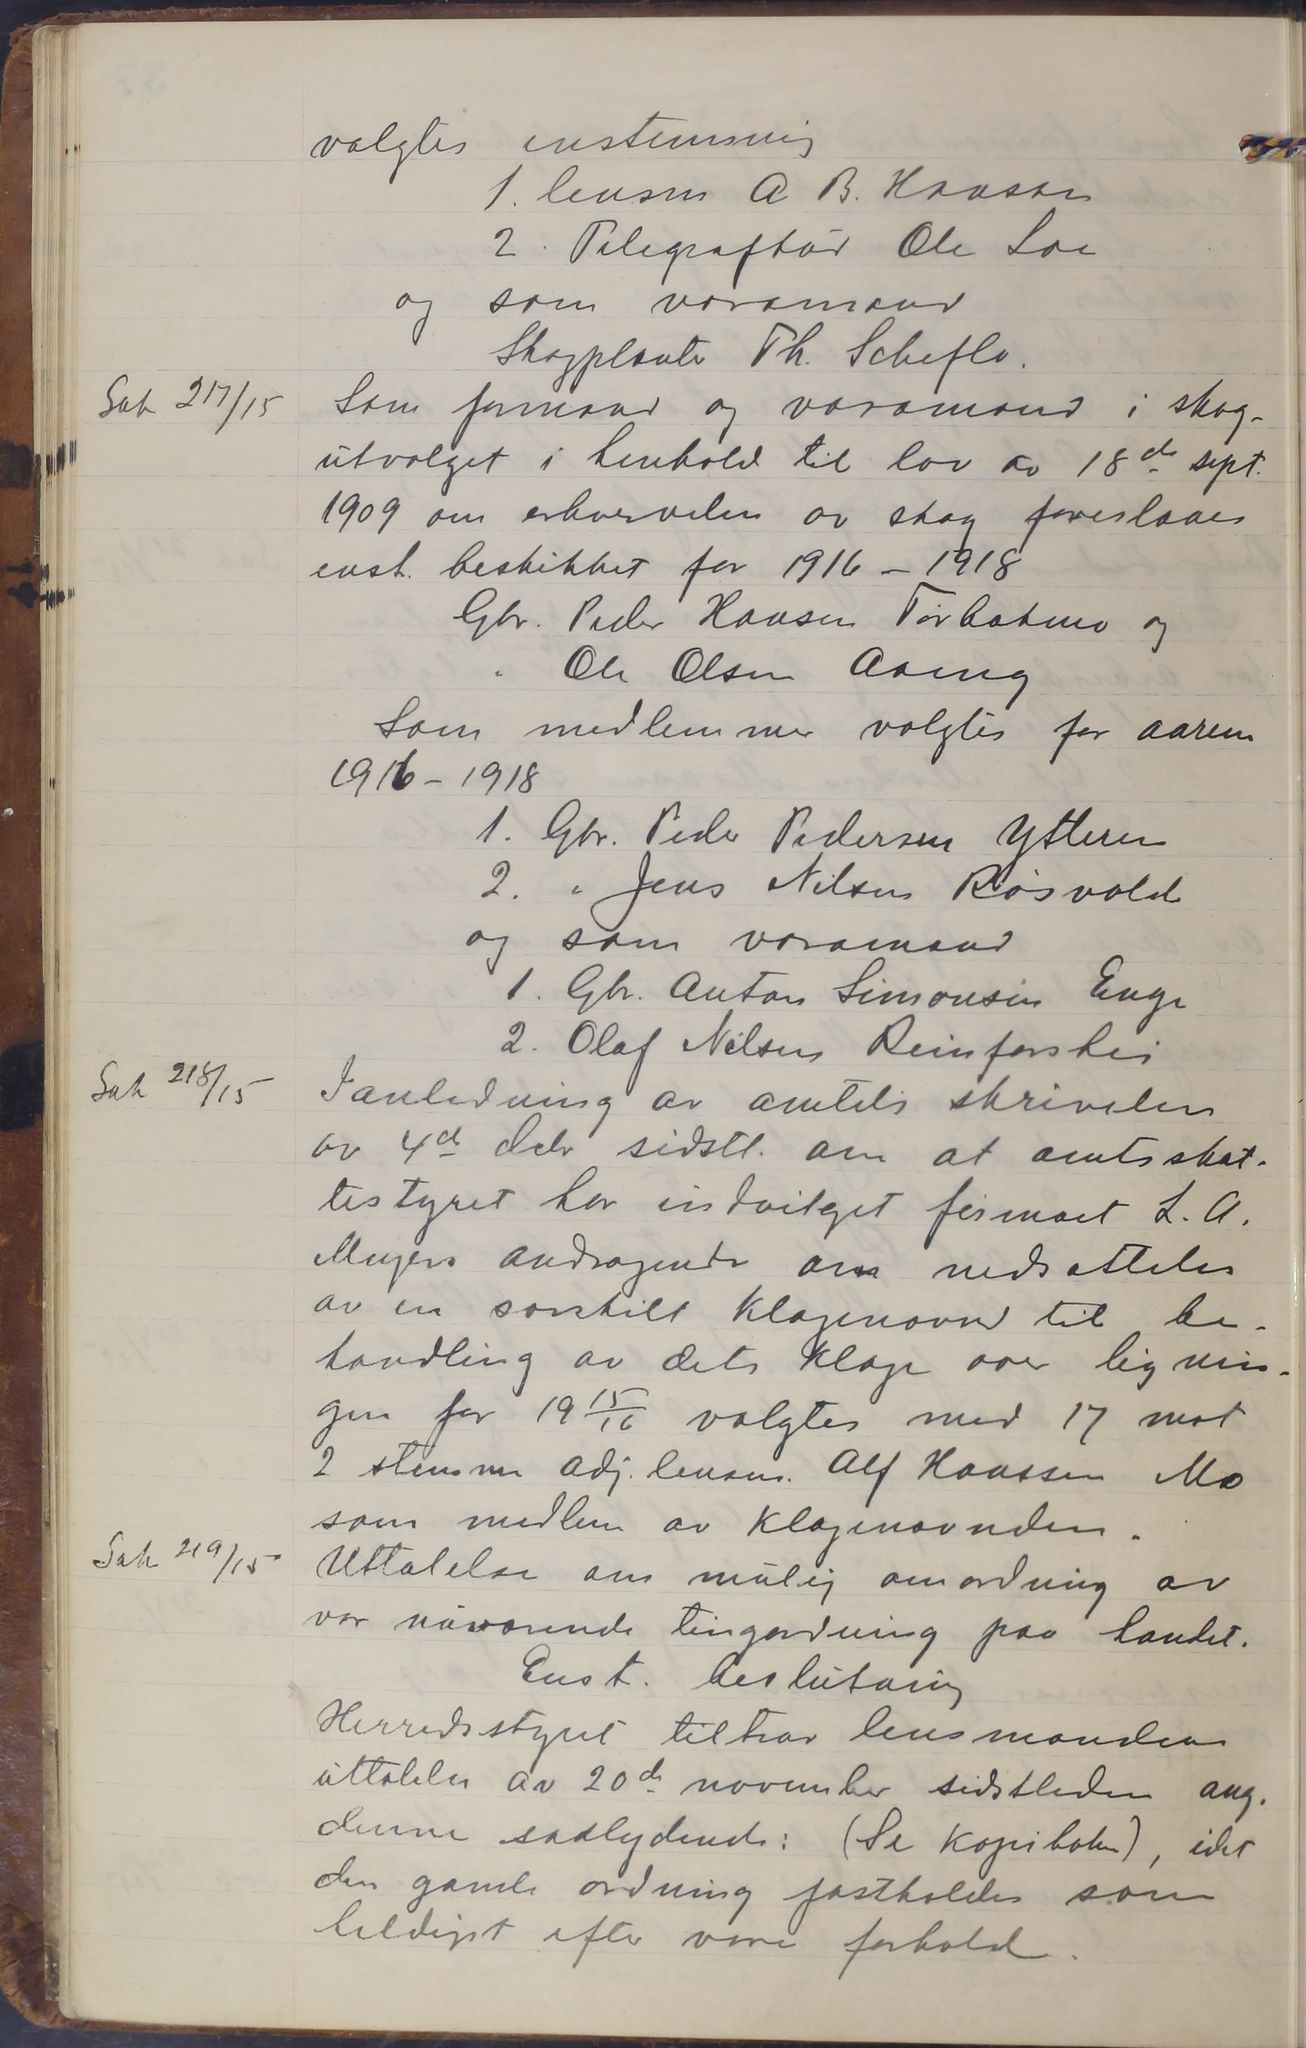 valgtes enstemmig
1. lensm A B. Hansen
2. Telegrafbud Ole Loe
og som varamand
Skogplanter Th. Scheflo.
Sak 217/15 Som formand og varamand i skog-
utvalget i henhold til lov av 18de sept.
1909 om erhvervelse av skog foreslaaes
enst. beskikket for 1916 - 1918
Gbr. Peder Hansen Tørbakmo og
" Ole Olsen Aaeng
Som medlemmer valgtes for aarene
1916 - 1918
1. Gbr. Peder Pedersen Ytteren
2. " Jens Nilsen Røsvold
og som varamand
1. Gbr. Anton Simonsen Enge
2. Olaf Nilsen Reinforshei
Sak 218/15 I anledning av amtets skrivelse
av 4de dcbr sidstl. om at amtsskat-
testyret har indvilget firmaet L. A.
Meyers andragende om nedsættelse
av en særskilt klagenævnd til be-
handling av dets klage over lignin-
gen for 19 15/16 valgtes med 17 mot
2 stemmer adj. lensm. Alf Hanssen Mo
som medlem av klagenævnden.
Sak 219/15 Uttalelse om mulig omordning av
vor nuværende tingordning paa landet.
Enst. beslutning
Herredsstyret tiltrær lensmandens
uttalelse av 20de november sidstleden ang.
denne saalydende: (Se kopiboken), idet
den gamle ordning fastholdes som
heldigst efter vore forhold.